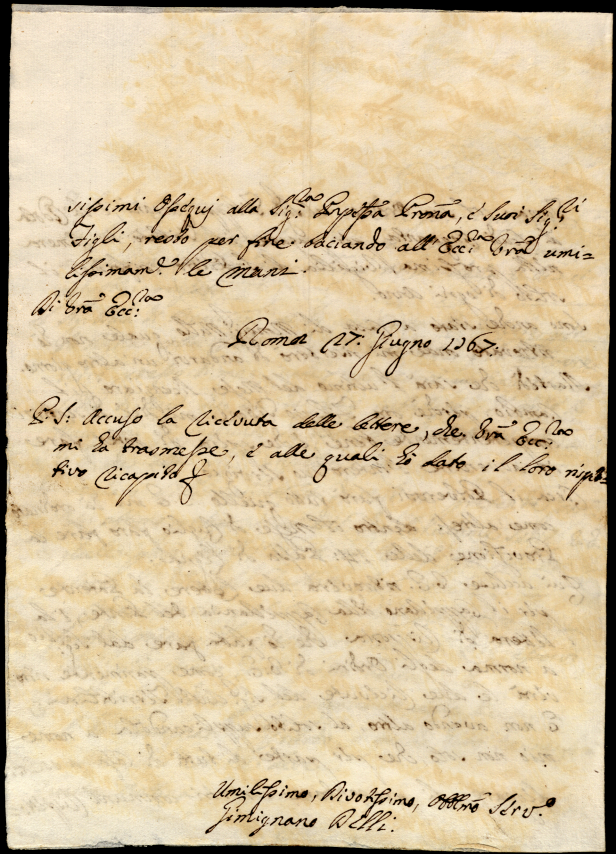 vissimi Ossequj alla Sig:ra Prpssa Prona, e suoi Sig:ri
Figli, resto per fine baciando all' Ecc:za Vra umi=
lissimam.e le Mani.
Di Vra Ecc:za
Roma 27. Giugno 1767.
P: S: Accuso la ricevuta delle lettere, che Vra Ecc:za
mi ha trasmesse, e alle quali hò dato il loro rispet=
tivo ricapito
Umilissimo, Divotissimo, Obblmo Serv.e
Gimignano Belli.